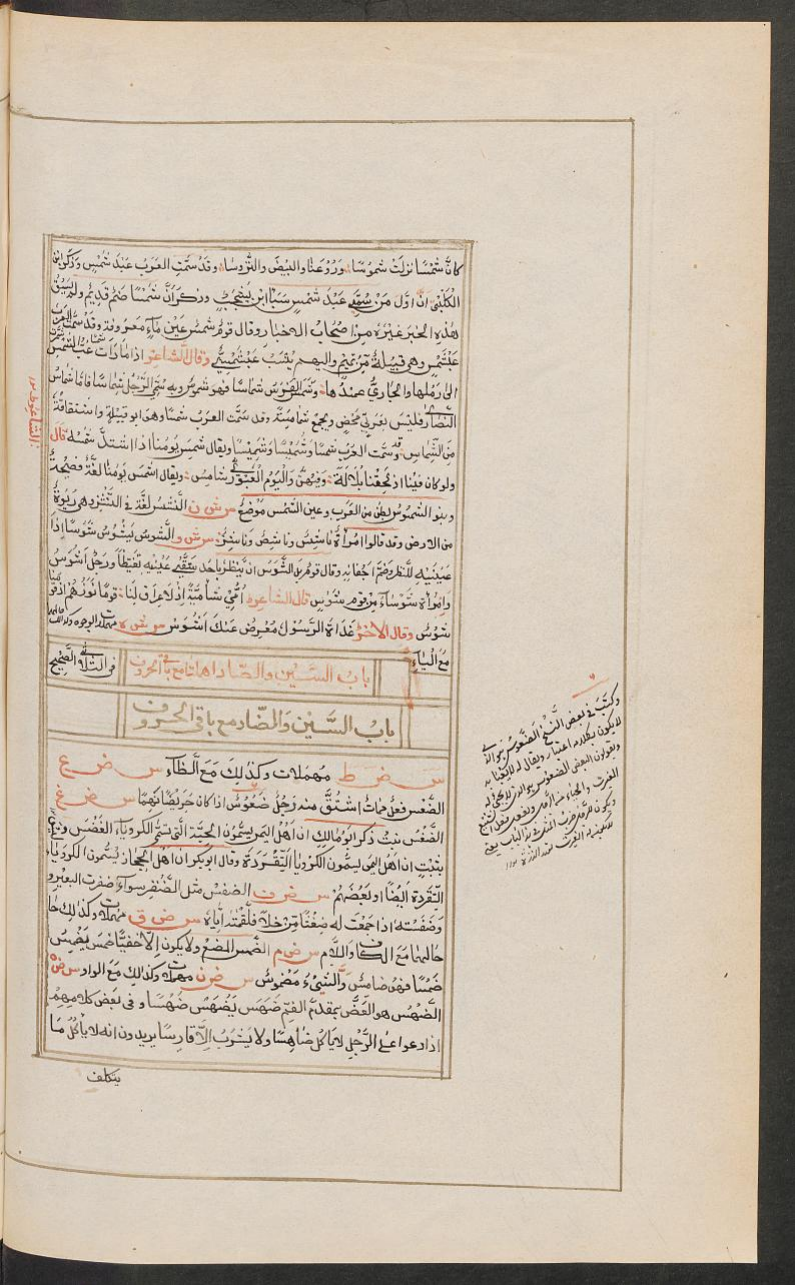 كانّ شمسًا نزلت شموسًا دروعنا والبيض والتروسا وقد سمّت العرب عبد شمس وذكر ابن
الكلبي انّ اوّل من سُمّي عبد شمس سبأ ابن يشجب وذكر انّ شمسًا صنم قديم ولم يسق
هذا الخبر غيره من اصحاب الاخبار وقال قوم شمس عين ماء معروفة وقد سمّت العرب
عبشمس وهي قبيلة من تميم واليهم ينسب عبشميّ وقال الشاعر اذا ما رأت شمسًا عبُ الشمس شمّرت
الى رملها والجارميّ عميدها وشمس الفرس شماسًا فهو شموس وبه سُمّي الرجل شماسًا فامّا شماس
النصارى فليس بعربي محض ويجمع شمامسة وقد سمّت العرب شمسًا وهو ابو قبيلة واشتقاقه
من الشماس وقد سمّت العرب شمسًا وشُميسًا وشَميسًا ويقال شمس يومنا اذا اشتدّ شمسه قال
ولو كان فينا اذ لحقنا بلالة وفيهنّ واليوم العبوري شامس ويقال اشمس يومنا لغة فصيحة
وبنو الشموس بطن من العرب وعين الشمس موضع س ش ن النشس لغة في النشز وهي ربوة
من الارض وقد قالوا امرأة ناشس وناشص وناشز س ش و الشوس شوس يشوس شوسًا اذا
عينيه للنظر وضمّ اجفانه وقال قوم بل الشوس ان ينظر باحد شقّي عينيه تغيّظًا ورجل اشوس
وامرأة شوساء من قوم شوس قال الشاعر
شوس وقال الآخر غداة الرسول معرض عنك اشوس س ش ه مهملت الوجوه وكذلك حالهما
مع الياء
باب السين والصاد اهملتا مع باقي الحروف في الثلاثي الصحيح
باب السين والضاد مع باقي الحروف
س ض ط مهملات وكذلك مع الظاء س ض ع
الضعس فعل ممات اشتقّ منه رجل ضعوس اذا كان حريصًا نهمًا س ض غ
الضغس نبت ذكر ابو مالك ان اهل اليمن يسمّون الحبّة التي تسمّى الكرويا الضغس وليس
بثبت ان اهل اليمن يسمّون الكرويا التقردة وقال ابو بكر ان اهل الحجاز يسمّون الكرويا
التقردة ايضًا او بعضهم س ض ف الضفس مثل الضفز سواء ضفزت البعير و
وضفسته اذا جمعت له ضغثًا من خلاء فلقمته اياه س ض ق مهملت وكذلك حا
حالهما مع الكاف واللام س ض م الضمس المضغ ولا يكون الا خفيًا ضمس يضمس
ضمسًا فهو ضامس والشيء مضموس س ض ن مهملت وكذلك مع الواو س ض ه
الضهس هو العضّ بمقدّم الفم ضهس يضهس ضهسًا وفي بعض كلامهم
اذا دعوا على الرجل لا يأكل ضاهسًا ولا يشرب الا قارسًا يريدون انه لا يأكل ما
يتكلف